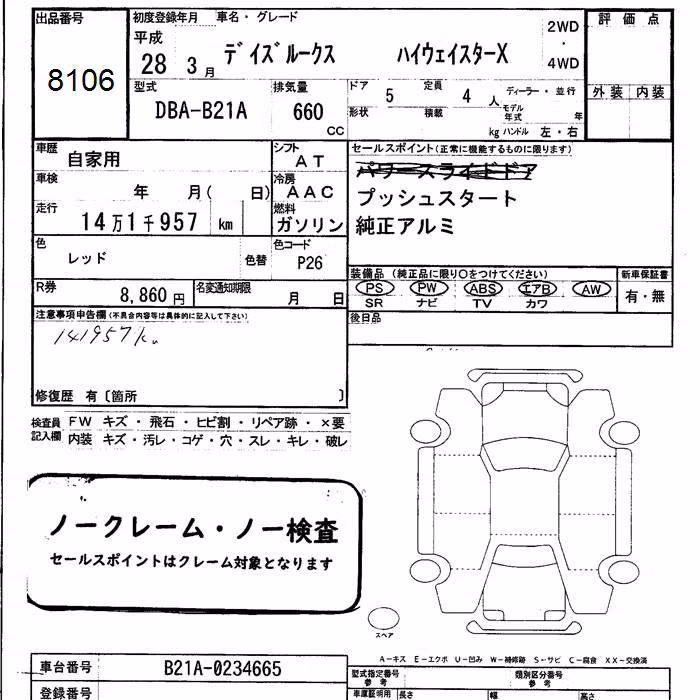 出品番号
8106
初度登録年月 車名・グレード
平成
28 3月 デイズルークス ハイウェイスターX
2WD
・
4WD
評価点
外装 内装
型式
DBA-B21A
排気量
660
CC
ドア 5 定員 4 人
形状 積載 kg
ディーラー・並行
モデル年式 年
ハンドル 左・右
車歴 自家用
シフト AT
車検 年 月( 日)
冷房 AAC
走行 14万1千957 km
燃料 ガソリン
色 レッド 色替
色コード P26
R券 8,860円
名変通知期限 月 日
セールスポイント(正常に機能するものに限ります)
パワースライドドア
プッシュスタート
純正アルミ
装備品(純正品に限り○をつけてください)
PS PW ABS エアB AW
SR ナビ TV カワ
新車保証書
有・無
後日品
注意事項申告欄(不具合内容等は具体的に記入して下さい)
141957km
修復歴 有〔箇所 〕
検査員記入欄
FW キズ・飛石・ヒビ割・リペア跡・×要
内装 キズ・汚レ・コゲ・穴・スレ・キレ・破レ
ノークレーム・ノー検査
セールスポイントはクレーム対象となります
スペア
A-キズ E-エクボ U-凹み W-補修跡 S-サビ C-腐食 XX-交換済
車台番号 B21A-0234665
登録番号
型式指定番号
参考
類別区分番号
参考
車庫証明用 長さ 幅 高さ